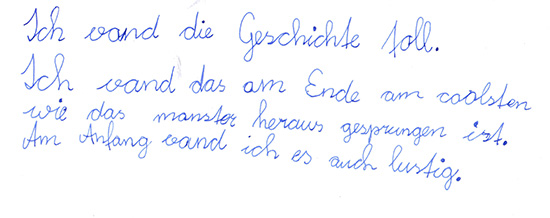 Ich vand die Geschichte toll.
Ich vand das am Ende am coolsten
wie das manster heraus gesprungen ist.
Am Anfang vand ich es auch lustig.